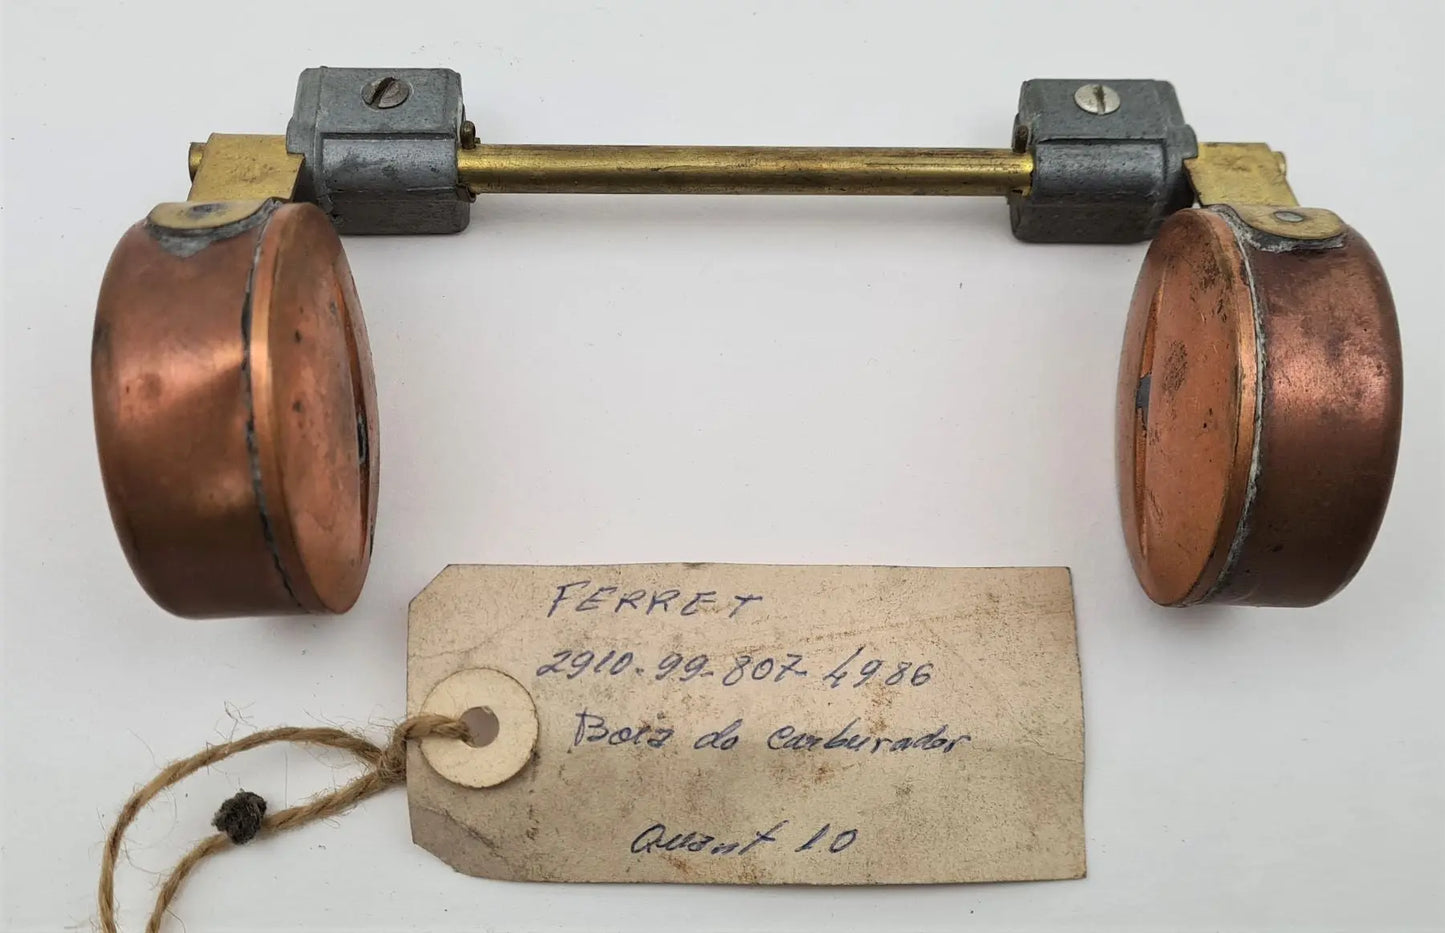 FERRET
2910-99-807-4986
Boia do carburador
Quant 10